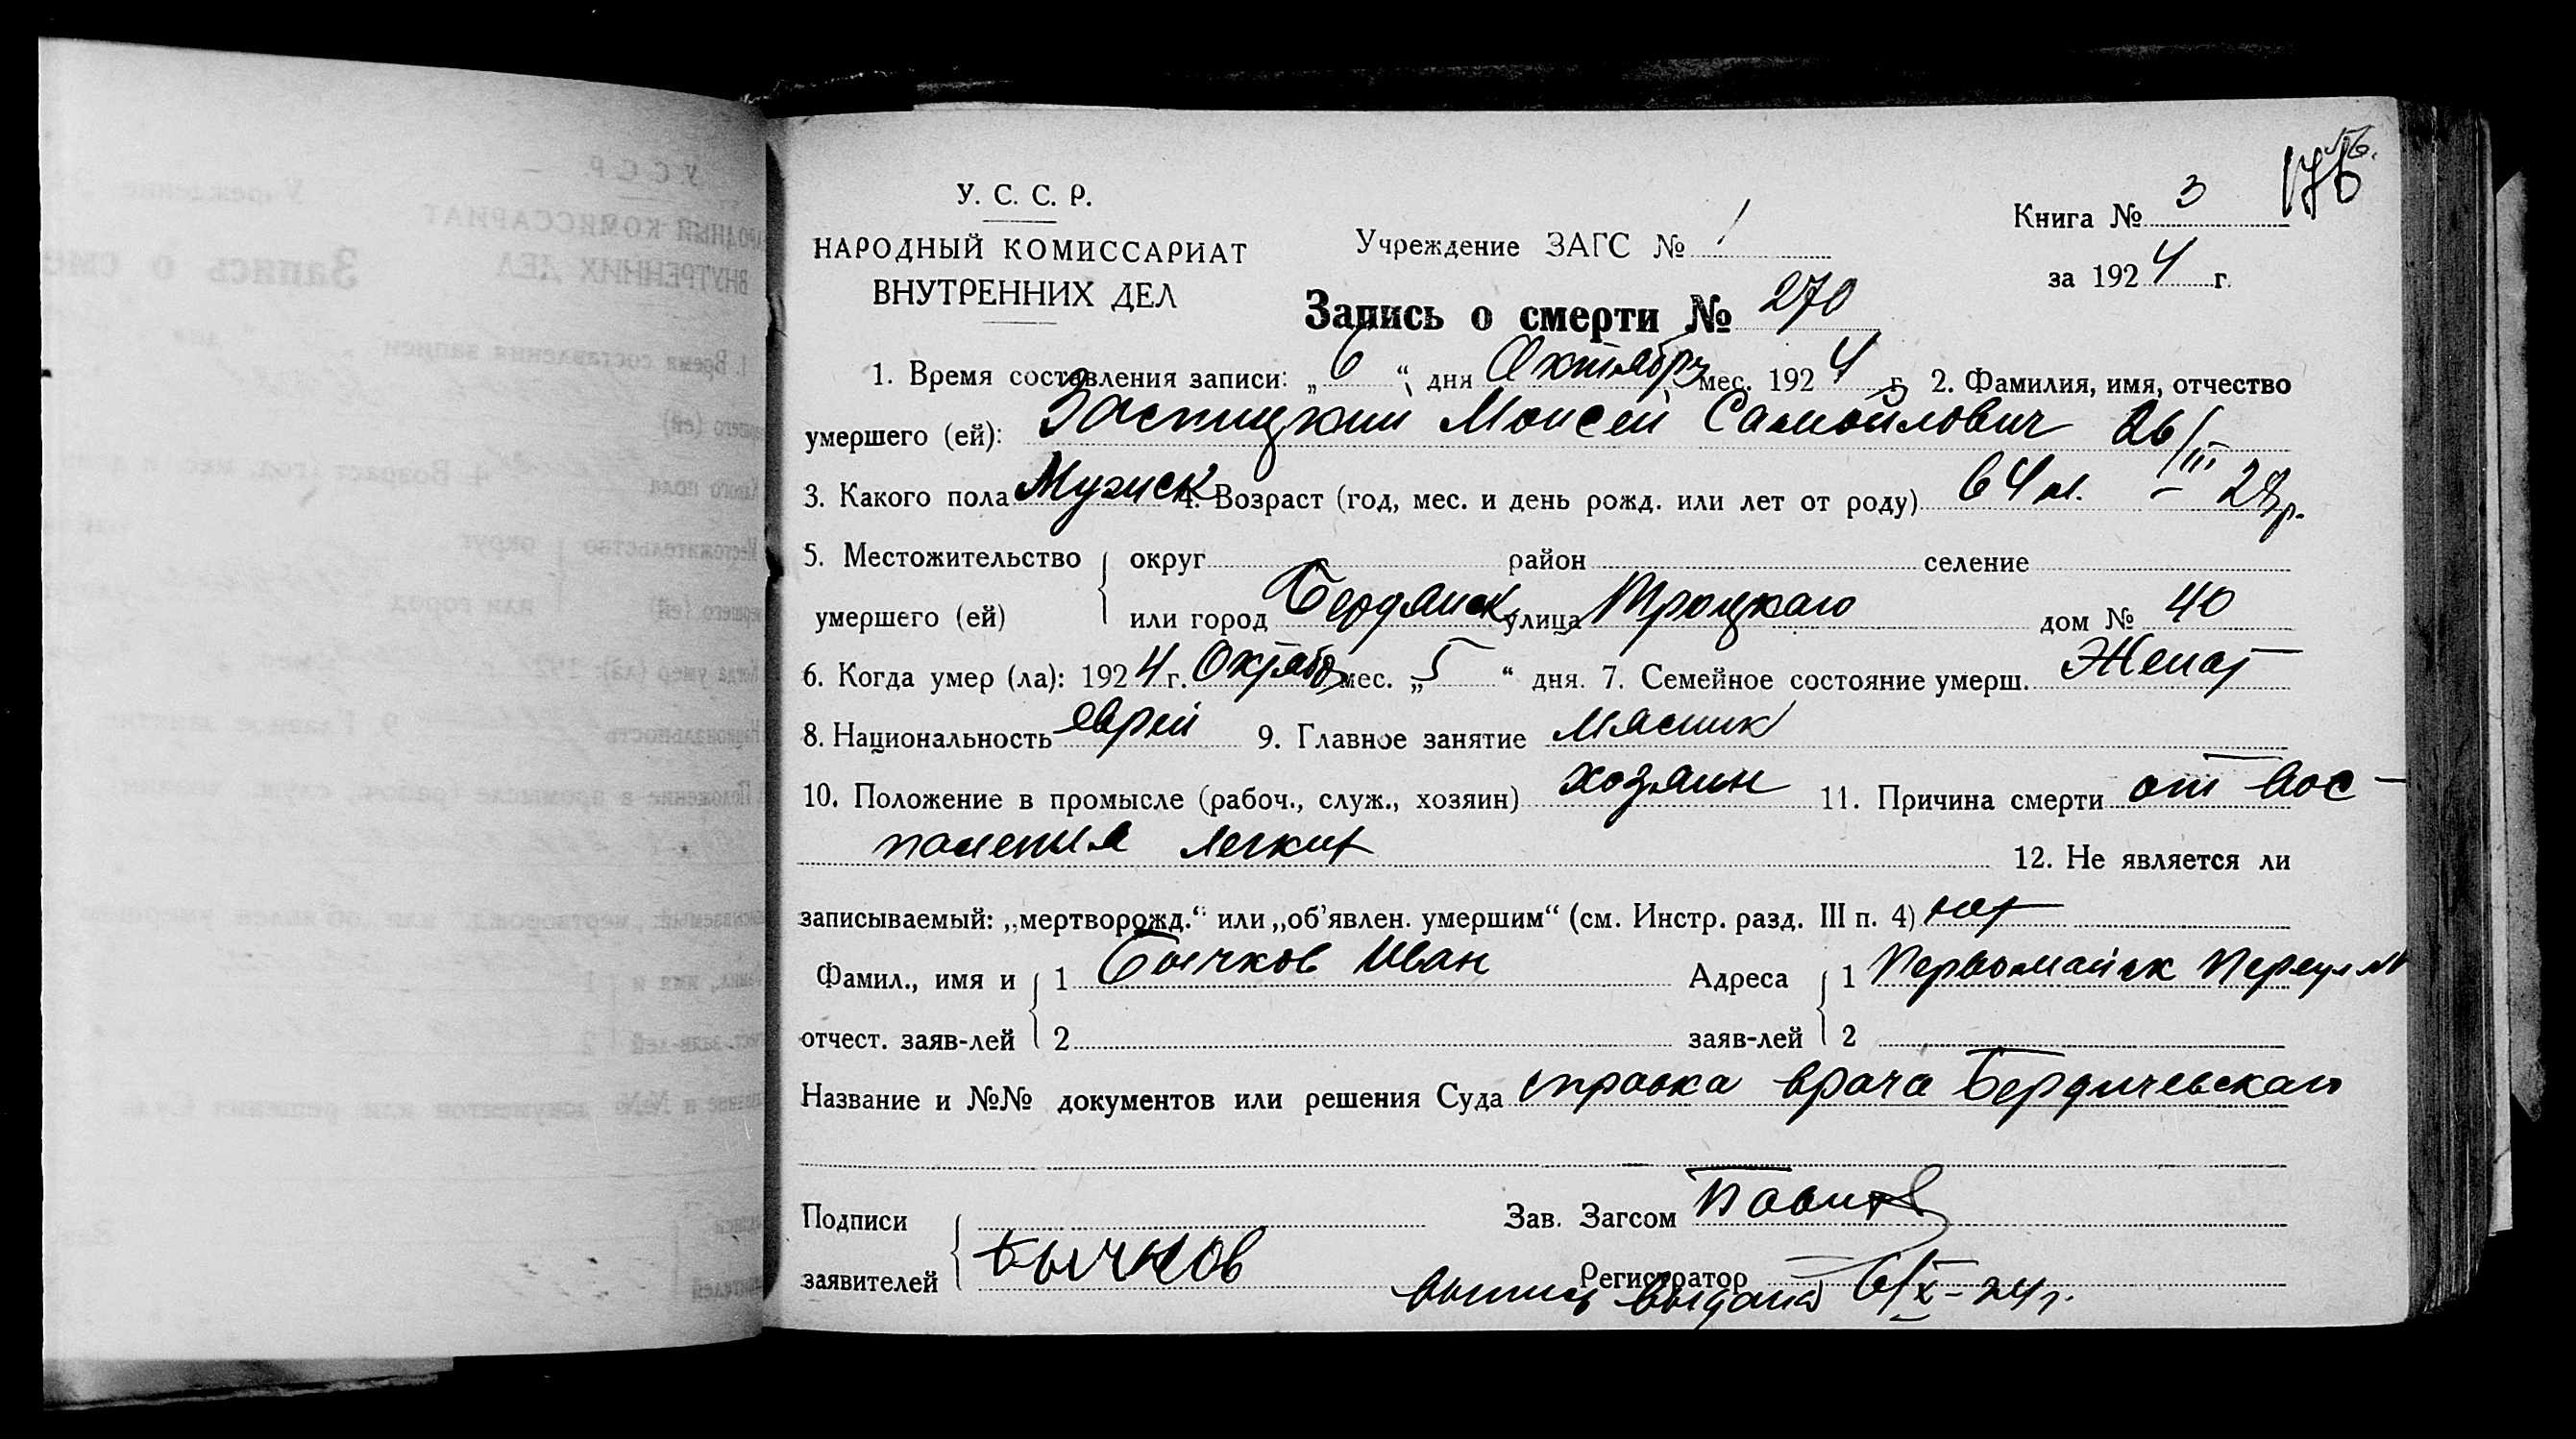 У. С. С. Р.
НАРОДНЫЙ КОМИССАРИАТ
ВНУТРЕННИХ ДЕЛ
Учреждение ЗАГС № 1
Книга № 3
176
за 1924 г.
Запись о смерти № 270
1. Время составления записи: „6“ дня Октября мес. 1924 г. 2. Фамилия, имя, отчество
умершего (ей): Заспицкий Моисей Самойлович
3. Какого пола Мужск 4. Возраст (год, мес. и день рожд. или лет от роду) 64 л.
5. Местожительство округ район селение
умершего (ей) или город Бердянск улица Троцкаго дом № 40
6. Когда умер (ла): 1924 г. Октябр мес. „5“ дня. 7. Семейное состояние умерш. Женат
8. Национальность еврей 9. Главное занятие мясник
10. Положение в промысле (рабоч., служ., хозяин) хозяин 11. Причина смерти от вос-
паления легких 12. Не является ли
записываемый: „мертворожд.“ или „об’явлен. умершим“ (см. Инстр. разд. III п. 4) нет
Фамил., имя и 1 Бычков Иван Адреса 1 Первомайск переул
отчест. заяв-лей 2 заяв-лей 2
Название и №№ документов или решения Суда справка врача Бердичевскаго
Подписи Зав. Загсом
заявителей Бычков Регистратор
выпись выдана 6/X-24 г.